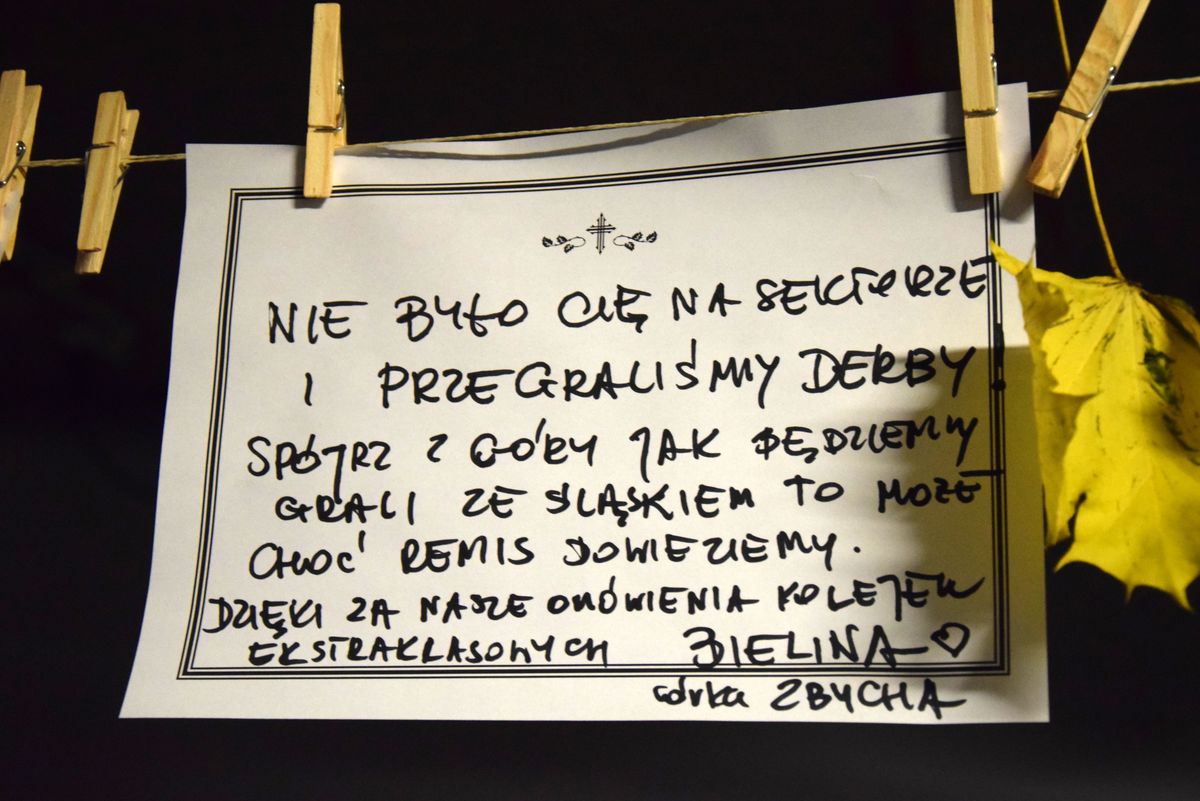 NIE BYŁO CIĘ NA SEKTORZE
I PRZEGRALIŚMY DERBY!
SPÓJRZ Z GÓRY JAK BĘDZIEMY
GRALI ZE ŚLĄSKIEM TO MOŻE
CHOĆ REMIS DOWIEZIEMY.
DZIĘKI ZA NASZE OMÓWIENIA KOLEJEK
EKSTRAKLASOWYCH BIELINA ♡
córka ZBYCHA